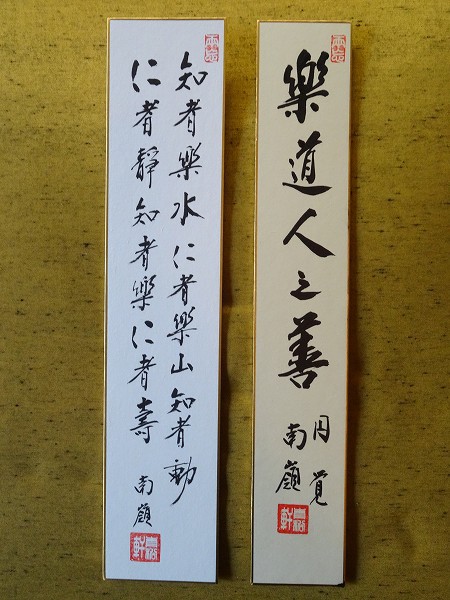 樂道人之善
円覚
南嶺
知者樂水仁者樂山知者動
仁者靜知者樂仁者壽
南嶺